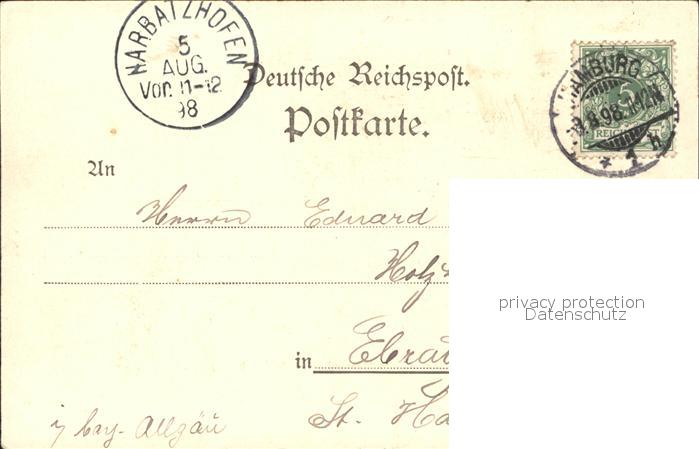 HARBATZHOFEN
5
AUG.
Vor. 11-12
98
Deutsche Reichspost.
Postkarte.
HAMBURG
5
8.98.
REICHSPOST
* 1 h
An
Herrn Eduard
Holz
in Ebra
St. Ha
i/ bay. Allgäu
privacy protection
Datenschutz